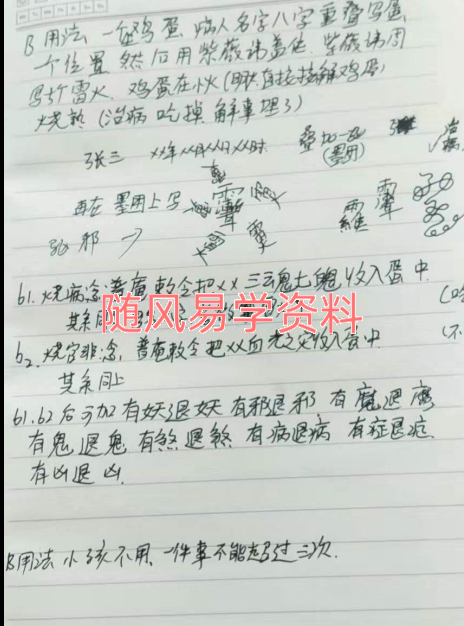 B用法 一个鸡蛋 病人名字八字重叠写蛋
一个位置 然后用紫微讳盖住 紫微讳周
写5个雷火 鸡蛋在小火(明火直接接触鸡蛋)
烧熟 (治病吃掉 解事埋了)
张三 xx年xx月xx日xx时
再在墨团上写
驱邪 →
b1. 烧病念 普庵敕令把xx三魂七魄收入蛋中
其余同
随风易学资料
b2. 烧官非念 普庵敕令把xx血光之灾收入蛋中
其余同上
b1.b2后可加 有妖退妖 有邪退邪 有魔退魔
有鬼退鬼 有煞退煞 有病退病 有症退症
有凶退凶
B用法 小孩不用 一件事不能超过三次.